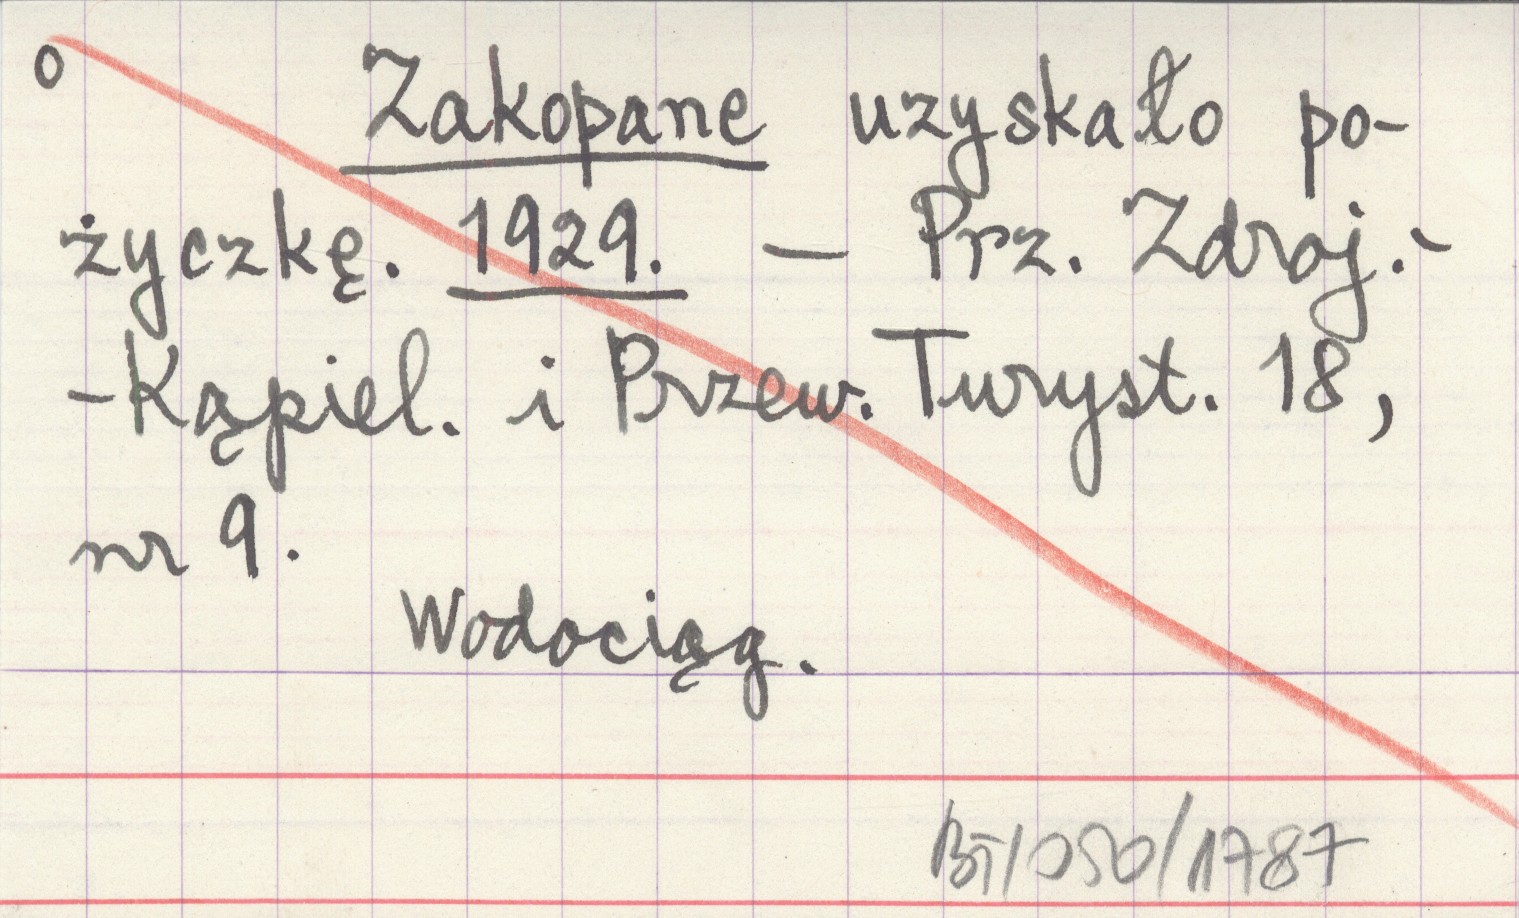 o
Zakopane uzyskało po-
życzkę. 1929. — Prz. Zdroj.-
-Kąpiel. i Przew. Turyst. 18,
nr 9.
Wodociąg.
BT/050/1787